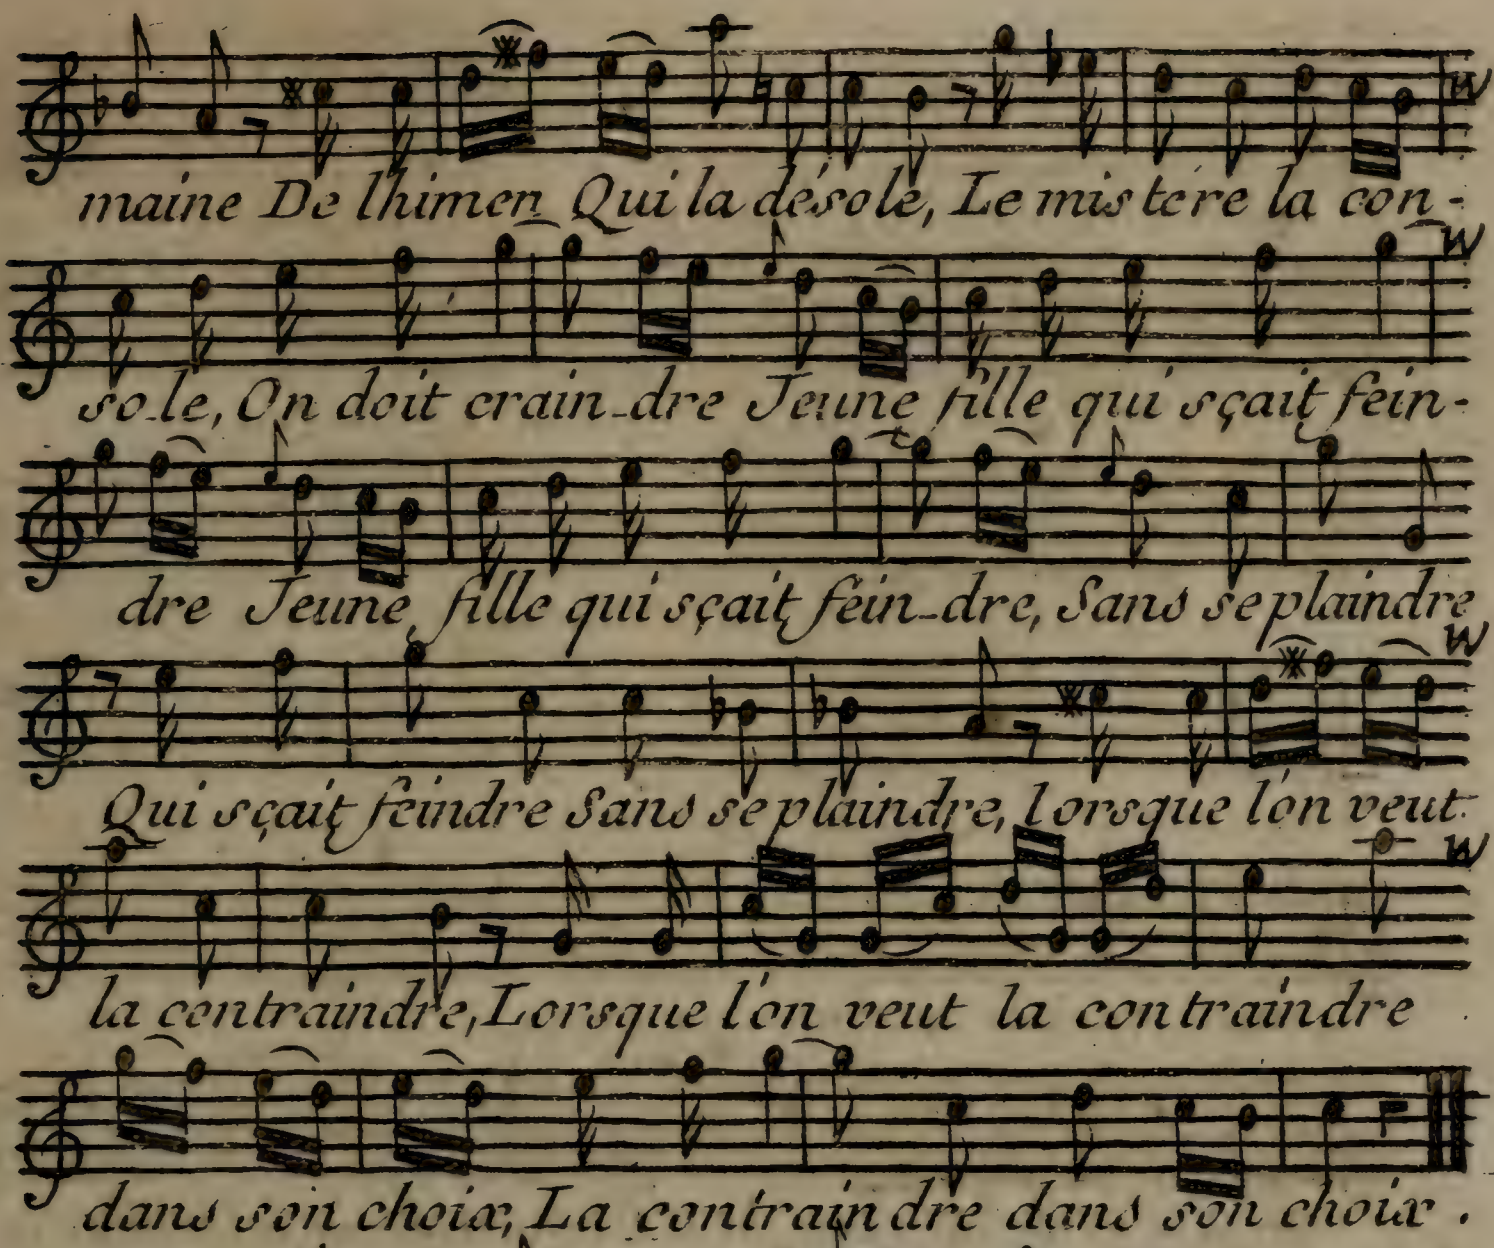 maine De lhimen Qui la désole, Le mistére la con-
so-le, On doit crain-dre Jeune fille qui sçait fein-
dre Jeune fille qui sçait fein-dre, Sans se plaindre
Qui sçait feindre Sans se plaindre, lorsque l'on veut
la contraindre, Lorsque l'on veut la contraindre
dans son choix, La contraindre dans son choix.